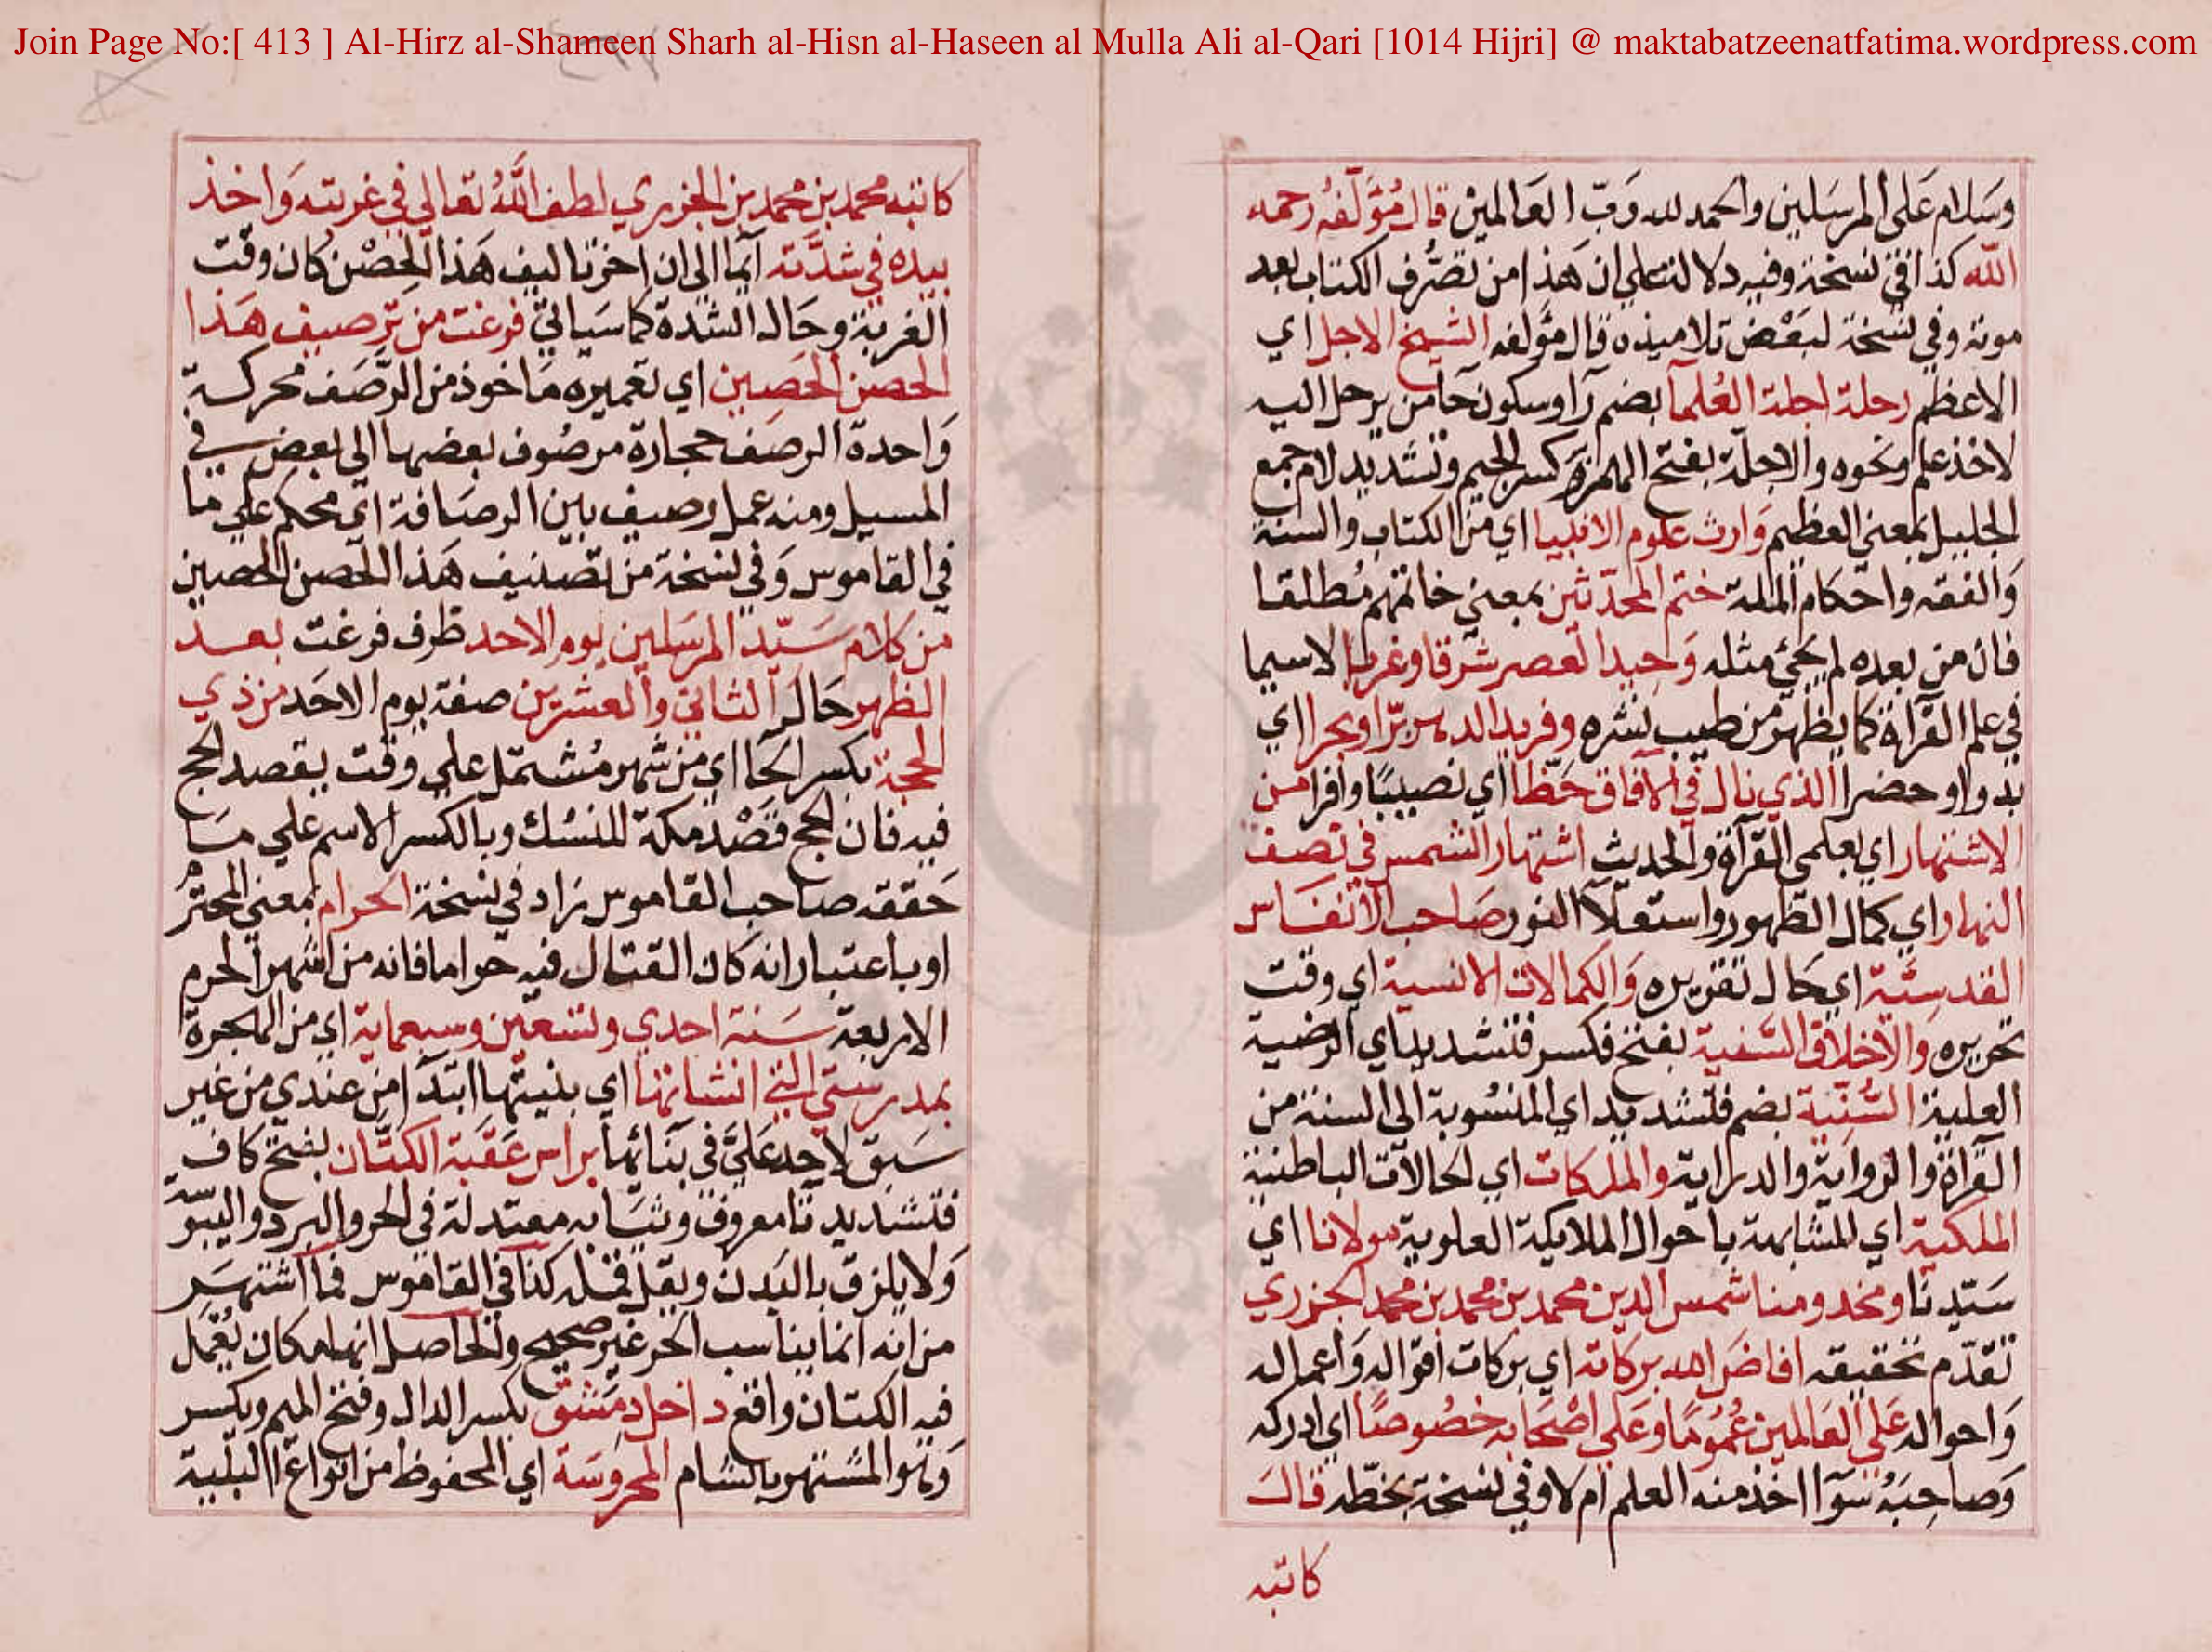 Join Page No:[ 413 ] Al-Hirz al-Shameen Sharh al-Hisn al-Haseen al Mulla Ali al-Qari [1014 Hijri] @ maktabatzeenatfatima.wordpress.com
وَسَلام عَلى المرسَلين والحمد لله رَبّ العَالمينْ قال مُؤَلّفُه رحمه
الله كذا في نسخة وفيه دلالة على ان هَذا من تصَرُّف الكتاب بعد
موته وفي نسخة لبَعْض تلاميذه قال مؤلفه الشيخ الاجل اي
الاعظم رحلة اجلة العُلمآ بضم رآ وسكون حآ من يرحل اليه
لاخذ علم ونحوه والاجلّة بفتح الهمزة وكسر الجيم وتشديد لام جمع
الجليل بمعني العظيم وَارث علوم الانبيا اي من الكتاب والسنة
وَالفقه واحكام الملة ختم المحدّثين بمعني خاتمهم مُطلقا
فان من بعده لم يجئ مثله وَحيد العصر شرقا وغربا لا سيما
في علم القرآة كما يظهر من طيب نشره وفريد الدهر برّا وبحرا اي
بدوا وحضرا الذي نال في الآفاق حَظّا اي نصيبًا وافرا من
الاشتهار اي بعلمى القرآة والحديث اشتهار الشمس في نصف
النهار اي كمال الظهور واستعلآ النور صَاحب الأنفَاس
القدسيّة اي حال تقريره وَالكمالات الانسية اي وقت
تحريره والاخلاق السَّنية بفتح فكسر فتشديد اي الرضية
العلية السُّنّية بضم فتشديد اي المنسُوبة الى السنة من
القرآة والرواية والدراية والملكات اي الحالات الباطنية
الملكية اي المشابهة باحوال الملايكة العلوية مولانا اي
سَيّدنا ومخدومنا شمس الدين محمد بن محمد بن محمد الجزري
تقدّم تحقيقه افاضَ الله بركاته اي بركات اقواله وَاعماله
وَاحواله عَلى العَالمين عُمُومًا وَعَلى اصْحَابه خصُوصًا اي ادركه
وَصاحبَهُ سَوَآ اخذ منه العلم ام لا وفي نسخة بخطّه قالَ
كاتبه
كاتبه محمد بن محمد بن الجزري لطف اللهُ تعالي في غربته وَاخذ
بيده في شدَّته ايمآ الى ان اخر تاليف هَذا الحِصْن كان وقت
الغربة وحَالة الشدة كما سَياتي فرغت من تَرصيف هَذا
الحصن الحَصِين اي تعميره مَاخوذ من الرّصَف محركة
وَاحدة الرصف حجارة مرصُوف بعضها الى بعض في
المسيل ومنه عمل رصيف بين الرصَافة اي محكم علي ما
في القاموس وَفي نسخة من تصنيف هَذا الحصن الحصين
من كلام سَيّد المرسَلين يوم الاحد ظرف فرغت بعد
الظهر حَالَ الثاني والعشرين صفة يوم الاحَد من ذي
الحجة بكسر الحآ اي من شهر مُشتمل على وقت يقصد الحج
فيه فان الحج قصْد مكة للنسُك وبالكسر الاسم علي مَا
حَققه صاحب القاموس زاد في نسخة الحرام بمعني المحترم
او باعتبار انه كان القتال فيه حراما فانه من اشهر الحرم
الاربعة سَنة احدي وتسعين وسبعماية اي من الهجرة
بمدرستي التي انشاتها اي بنيتها ابتدآ من عندي من غير
سَبق لاحد عَلَيَّ في بنَائها براس عَقَبَة الكتّان بفتح كاف
فتشديد تا معروف وثيَابه معتدلة في الحر والبرد واليبوسة
وَلا يلزق بالبَدن ويقل قمله كذا في القاموس فما اشتهرَ
من انه انما يناسب الحر غير صَحيح وَالحاصل انها مكان يُعْمَل
فيه الكتان واقع داخل دمَشق بكسر الدال وفتح الميم ويكسر
وَهو المشتهر بالشام المحروسَة اي المحفوظ من انواع البلية